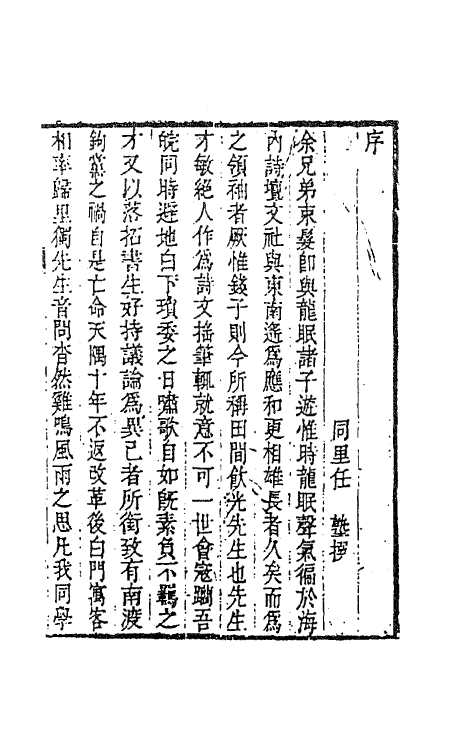 序
同里任　　撰
余兄弟束髮即與龍眠諸子遊惟時龍眠聲氣徧於海
內詩壇文社與東南遙爲應和更相雄長者久矣而爲
之領袖者厥惟錢子則今所稱田間飲光先生也先生
才敏絕人作爲詩文搖筆輒就意不可一世會寇躪吾
皖同時避地白下瑣委之日嘯歌自如旣素負不羈之
才又以落拓書生好持議論爲異己者所銜致有南渡
鉤黨之禍自是亡命天隅十年不返改革後白門寓客
相率歸里獨先生音問杳然雞鳴風雨之思凡我同學